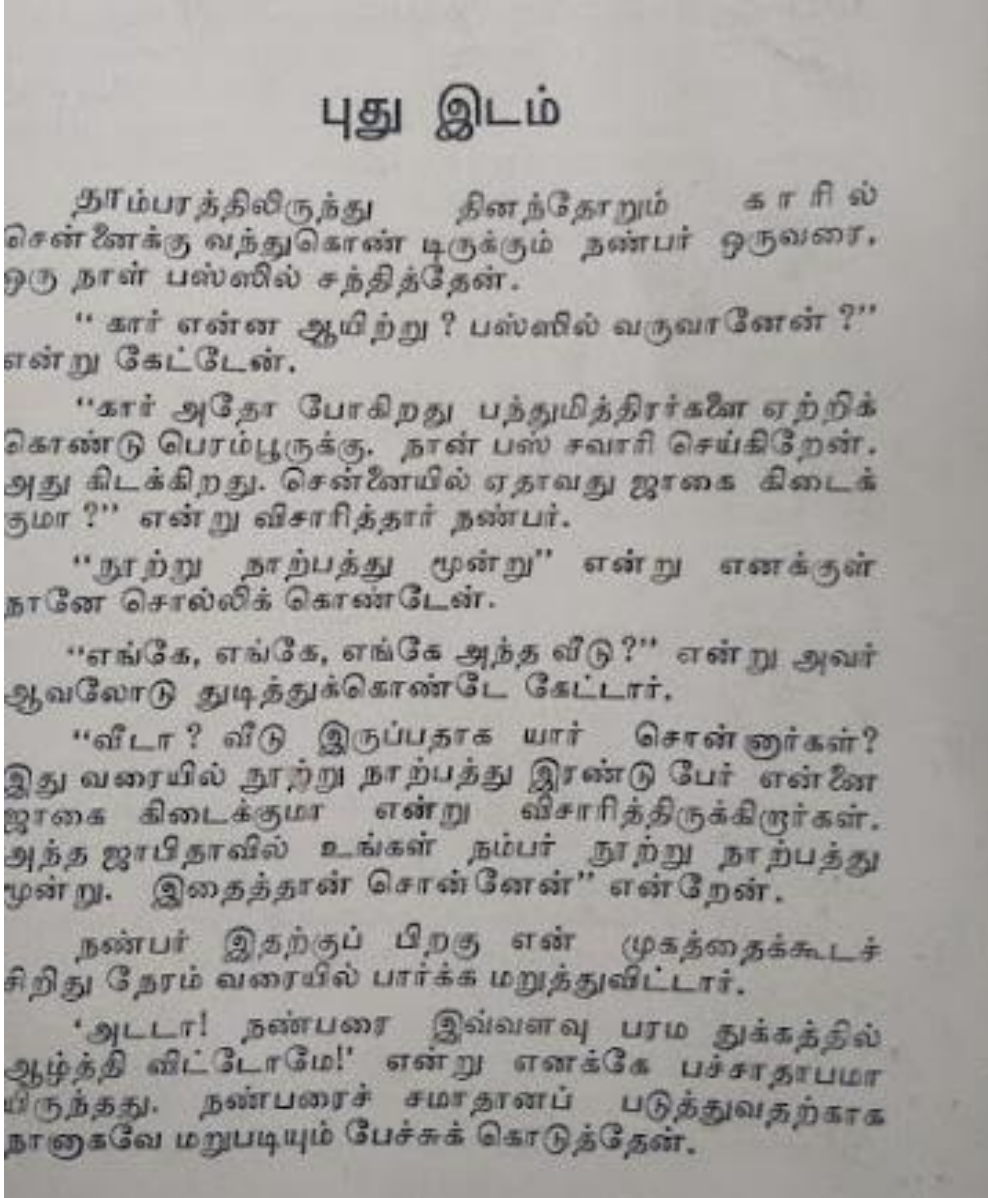 புது இடம்
தாம்பரத்திலிருந்து தினந்தோறும் காரில்
சென்னைக்கு வந்துகொண் டிருக்கும் நண்பர் ஒருவரை,
ஒரு நாள் பஸ்ஸில் சந்தித்தேன்.
“ கார் என்ன ஆயிற்று ? பஸ்ஸில் வருவானேன் ?”
என்று கேட்டேன்.
“கார் அதோ போகிறது பந்துமித்திரர்களை ஏற்றிக்
கொண்டு பெரம்பூருக்கு. நான் பஸ் சவாரி செய்கிறேன்.
அது கிடக்கிறது. சென்னையில் ஏதாவது ஜாகை கிடைக்
குமா ?” என்று விசாரித்தார் நண்பர்.
“நூற்று நாற்பத்து மூன்று” என்று எனக்குள்
நானே சொல்லிக் கொண்டேன்.
“எங்கே, எங்கே, எங்கே அந்த வீடு ?” என்று அவர்
ஆவலோடு துடித்துக்கொண்டே கேட்டார்.
“வீடா ? வீடு இருப்பதாக யார் சொன்னார்கள்?
இது வரையில் நூற்று நாற்பத்து இரண்டு பேர் என்னை
ஜாகை கிடைக்குமா என்று விசாரித்திருக்கிறார்கள்.
அந்த ஜாபிதாவில் உங்கள் நம்பர் நூற்று நாற்பத்து
மூன்று. இதைத்தான் சொன்னேன்” என்றேன்.
நண்பர் இதற்குப் பிறகு என் முகத்தைக்கூடச்
சிறிது நேரம் வரையில் பார்க்க மறுத்துவிட்டார்.
‘அடடா! நண்பரை இவ்வளவு பரம துக்கத்தில்
ஆழ்த்தி விட்டோமே!’ என்று எனக்கே பச்சாதாபமா
யிருந்தது. நண்பரைச் சமாதானப் படுத்துவதற்காக
நானாகவே மறுபடியும் பேச்சுக் கொடுத்தேன்.